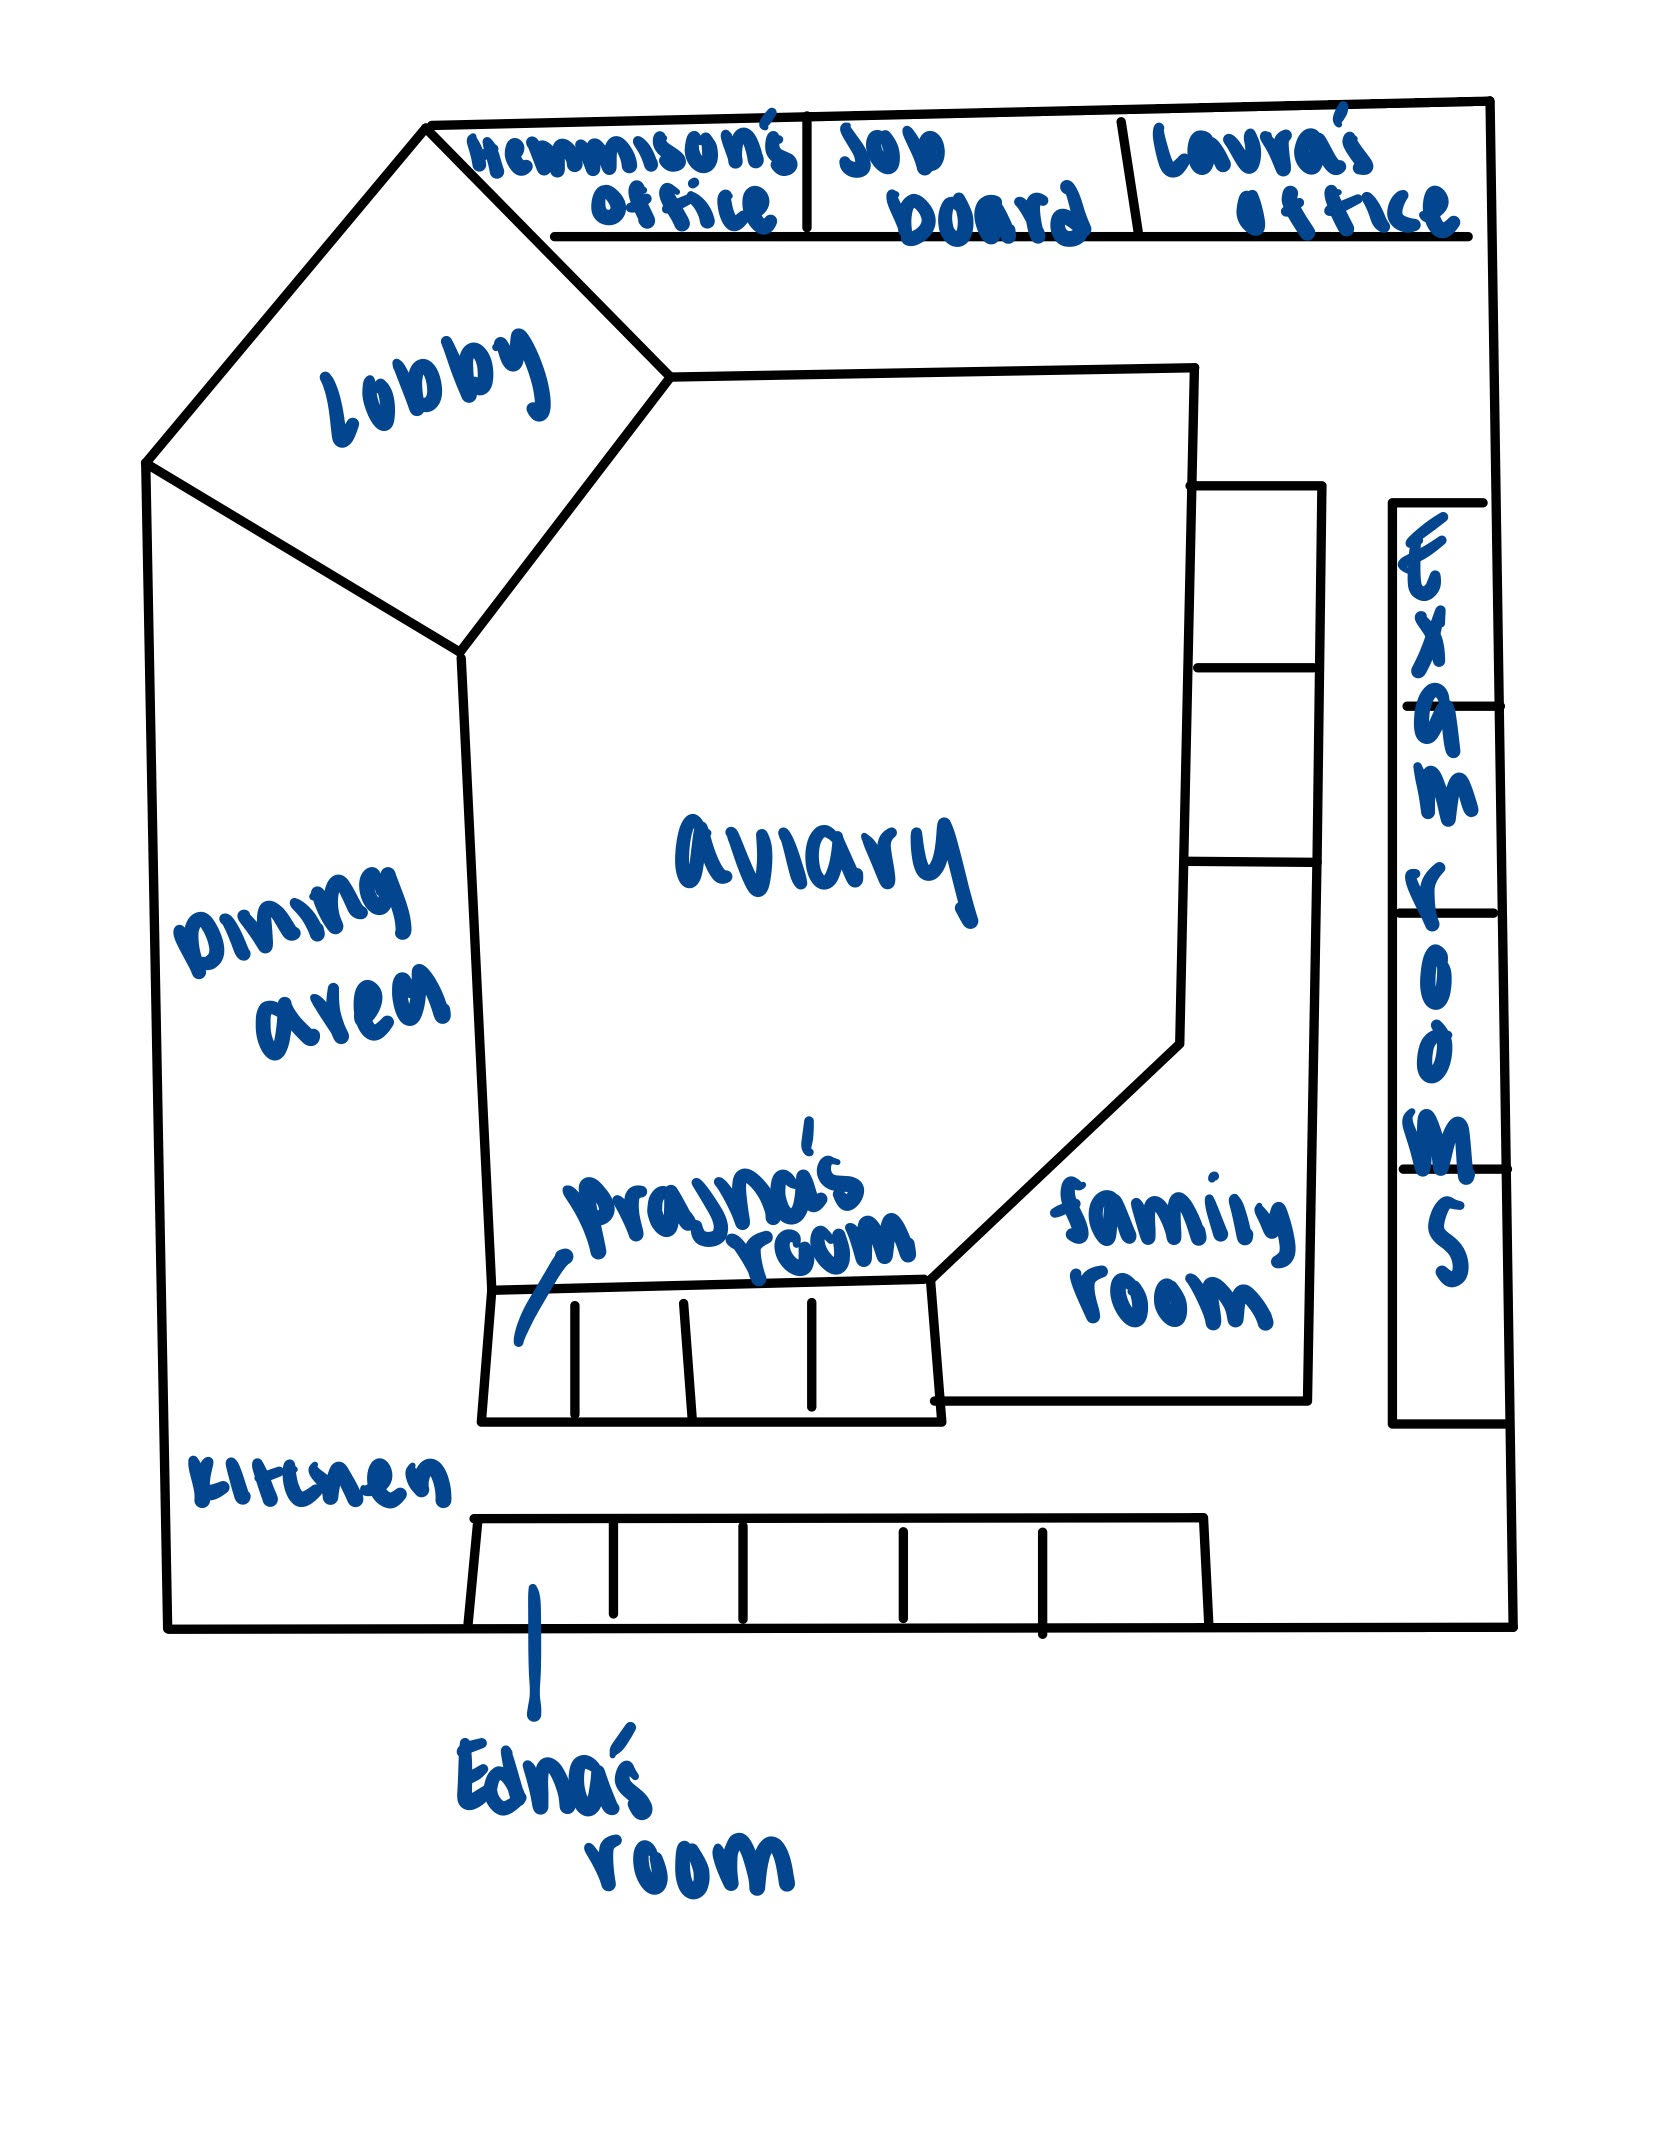 office
Job
board
Laura's
office
Lobby
Exam rooms
aviary
Dining
area
Prajna's
room
family
room
kitchen
Edna's
room